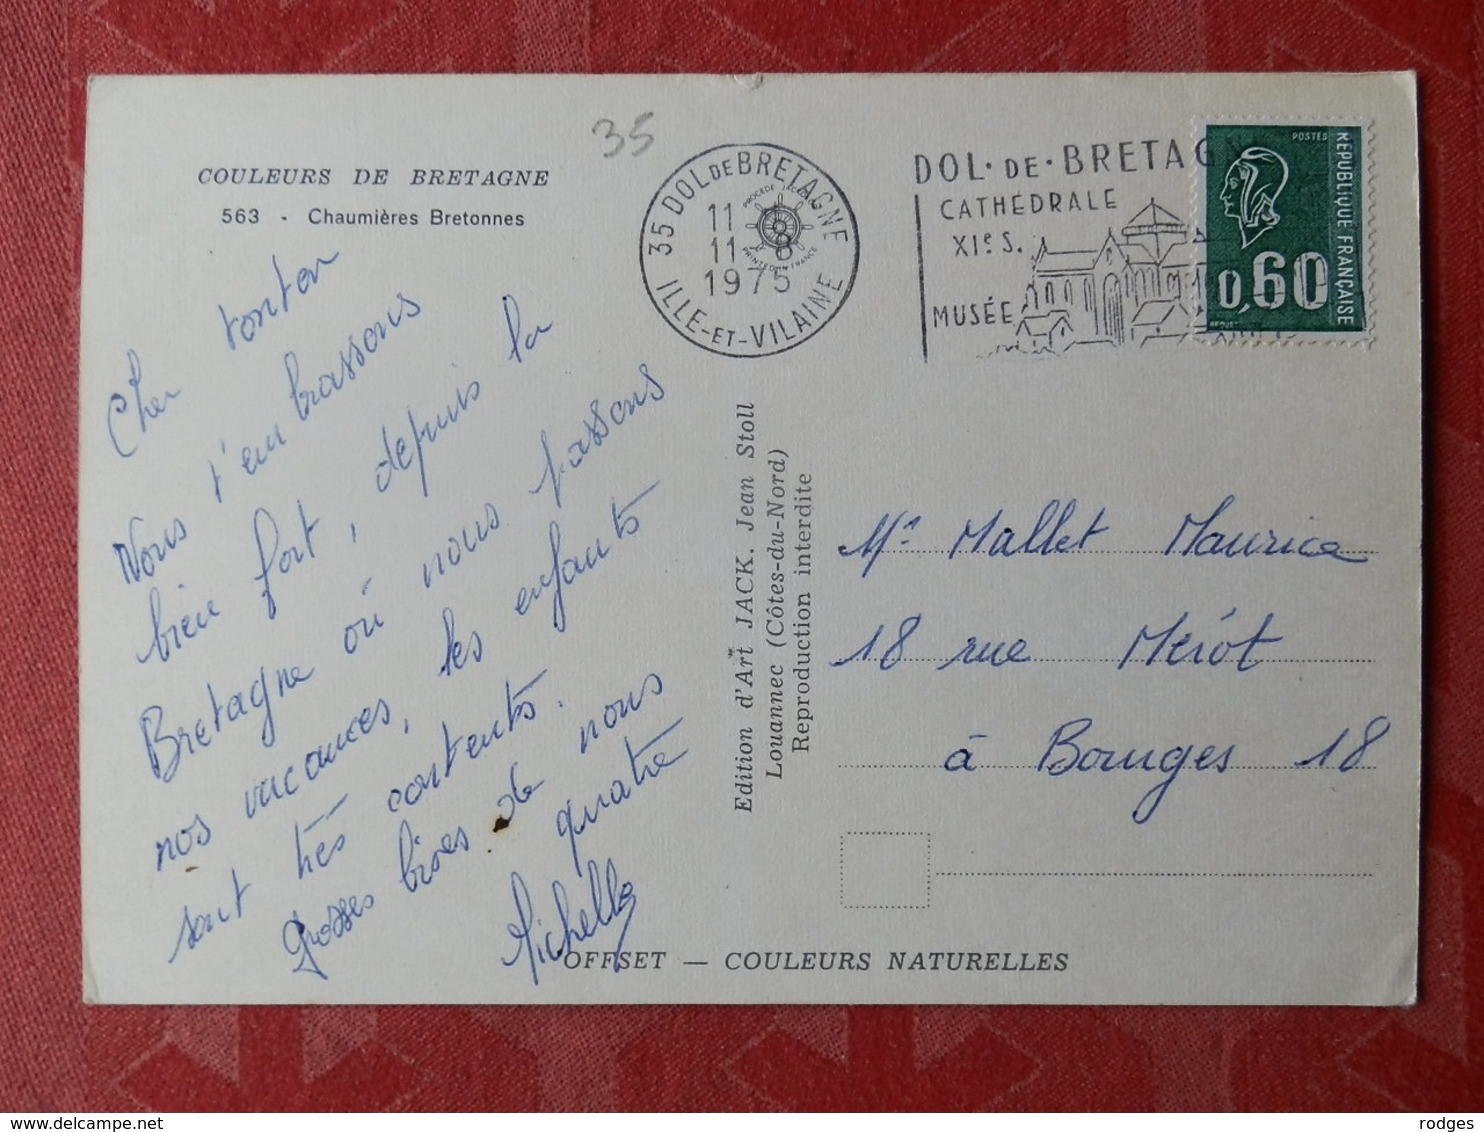 35
COULEURS DE BRETAGNE
563 - Chaumières Bretonnes
35 DOL DE BRETAGNE
11
11 - 8
1975
ILLE-ET-VILAINE
PROCEDE JACK
PRINTED IN FRANCE
DOL·DE·BRETAGN
CATHÉDRALE
XIe S.
MUSÉE
POSTES
REPUBLIQUE FRANÇAISE
0,60
Cher tonton
Nous t'embrassons
bien fort, depuis la
Bretagne où nous passons
nos vacances, les enfants
sont très contents.
Grosses bises de nous
quatre
Michelle
Edition d'Art JACK. Jean Stoll
Louannec (Côtes-du-Nord)
Reproduction interdite
Mr Mallet Maurice
18 rue Mérot
à Bourges 18
OFFSET — COULEURS NATURELLES
rodges